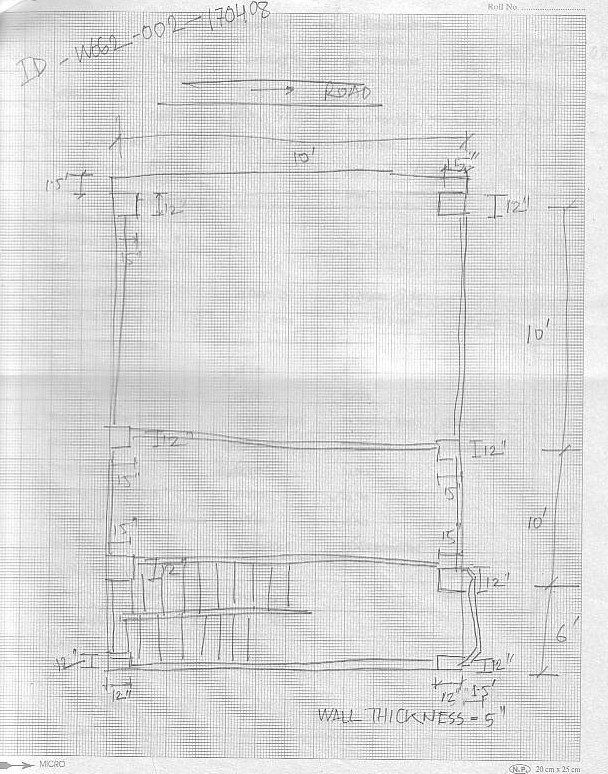 Roll No.
ID-W062-002-170408
ROAD
10'
15"
1.5'
12"
12"
15"
10'
12"
12"
15"
15"
15"
15"
10'
12"
12"
6'
12"
12"
12"
12"
1.5'
WALL THICKNESS = 5"
MICRO
N.P. 20 cm x 25 cm